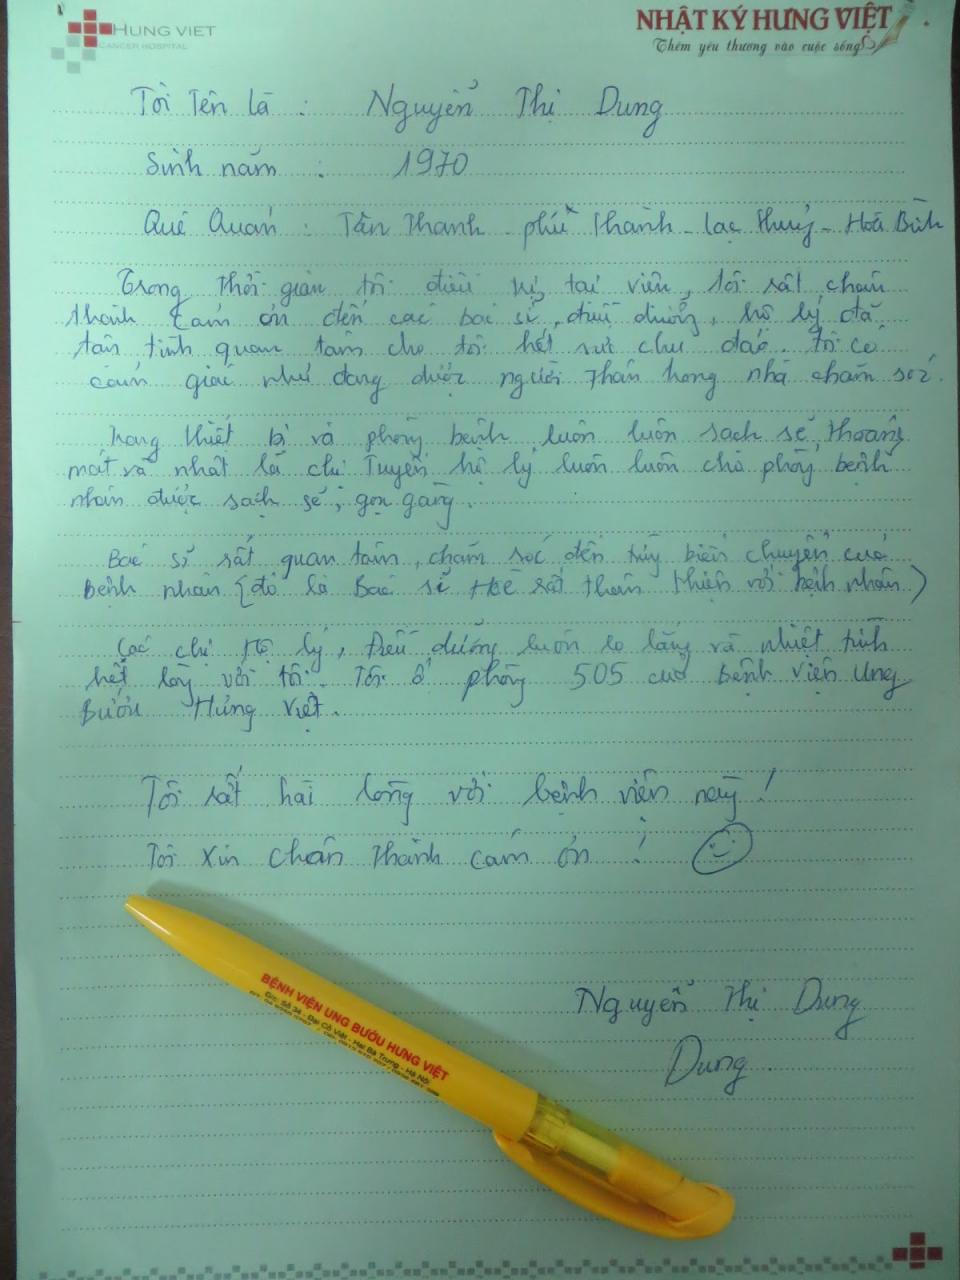 HUNG VIET
CANCER HOSPITAL
NHẬT KÝ HƯNG VIỆT
Thêm yêu thương vào cuộc sống
Tôi Tên là : Nguyễn Thị Dung
Sinh năm : 1970
Quê Quán : Tân Thanh - phú Thành - Lạc Thuỷ - Hoà Bình
Trong thời gian tôi điều trị tại viện, tôi rất chân
thành cảm ơn đến các bác sĩ, điều dưỡng, hộ lý đã
tận tình quan tâm cho tôi hết sức chu đáo. Tôi có
cảm giác như đang được người thân trong nhà chăm sóc.
Trang thiết bị và phòng bệnh luôn luôn sạch sẽ, thoáng
mát và nhất là chị Tuyến hộ lý luôn luôn cho phòng bệnh
nhân được sạch sẽ, gọn gàng.
Bác sĩ rất quan tâm, chăm sóc đến từng biến chuyển của
bệnh nhân (đó là Bác sĩ Hè rất thân thiện với bệnh nhân)
Các chị Hộ lý, Điều dưỡng luôn lo lắng và nhiệt tình
hết lòng với tôi. Tôi ở phòng 505 của Bệnh viện Ung
Bướu Hưng Việt.
Tôi rất hài lòng với bệnh viện này!
Tôi xin chân thành cảm ơn !
Nguyễn Thị Dung
Dung
BỆNH VIỆN UNG BƯỚU HƯNG VIỆT
Đ/c: Số 34 - Đại Cồ Việt - Hai Bà Trưng - Hà Nội